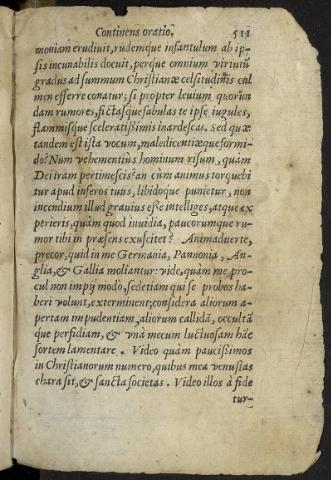 Continens oratio. 511
moniam erudiuit, rudemque infantulum ab ip-
sis incunabilis docuit, perque omnium virtutũ
gradus ad summum Christianæ celsitudinis cul
men efferre conatur; si propter leuium quorun
dam rumores, fictasque fabulas te ipse iugules,
flammisque sceleratißimis inardescas. Sed quæ
tandem est ista vocum, maledicentiæque formi-
do? Num vehementiùs hominum risum, quàm
Dei iram pertimescis? an cùm animus torquebi
tur apud inferos tuus, libidoque punietur, non
incendium illud grauius eße intelliges, atque ex
perieris, quàm quod inuidia, paucorumque ru-
mor tibi in præsens exuscitet? Animaduerte,
precor, quid in me Germania, Pannonia, An-
glia, & Gallia moliantur: vide, quàm me pro-
cul non impij modò, sed etiam qui se probos ha-
beri volunt, exterminent; considera aliorum a-
pertam impudentiam, aliorum callidã, occultã
que perfidiam, & vnà mecum luctuosam hãc
sortem lamentare. Video quàm paucißimos
in Christianorum numero, quibus mea venustas
chara sit, & sancta societas. Video illos à fide
tur-